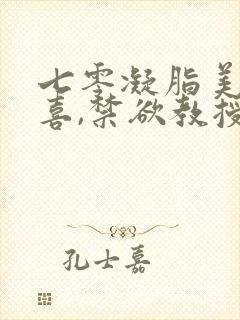 七零凝脂美
喜,禁欲教授
孔士嘉